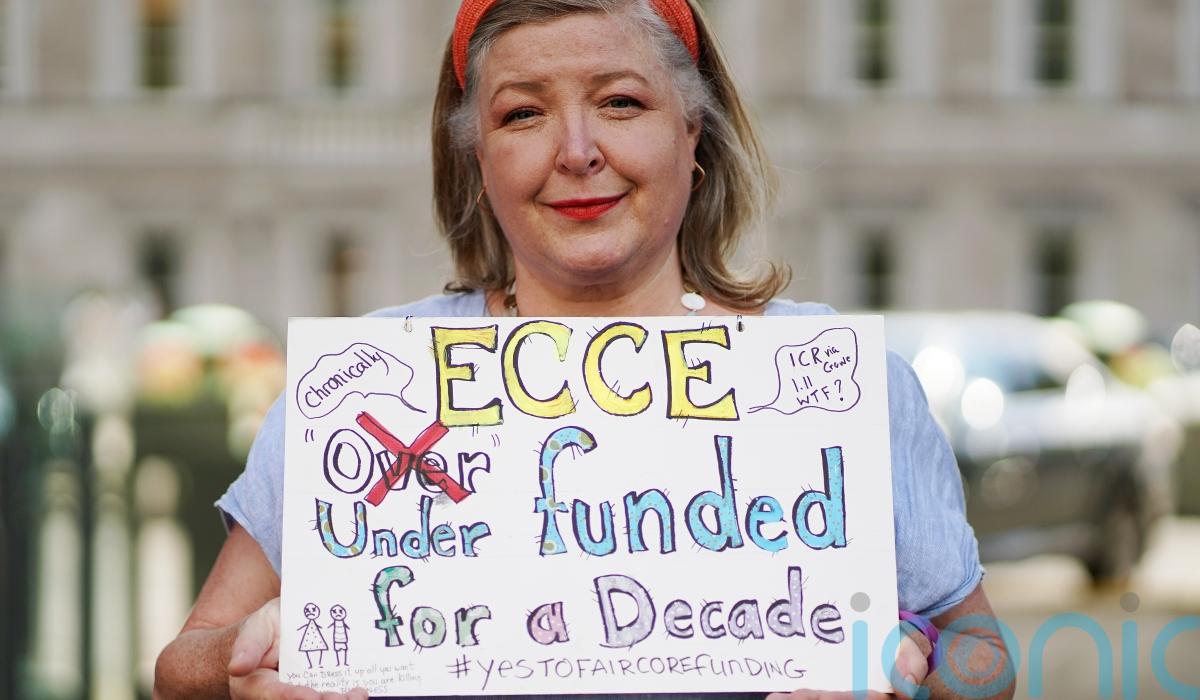 ECCE
Chronically
ICR via
Crowe
1.11
WTF?
"Over"
Under funded
for a Decade
#YESTOFAIRCOREFUNDING
you can dress it up all you want
the reality is you are killing
iconic